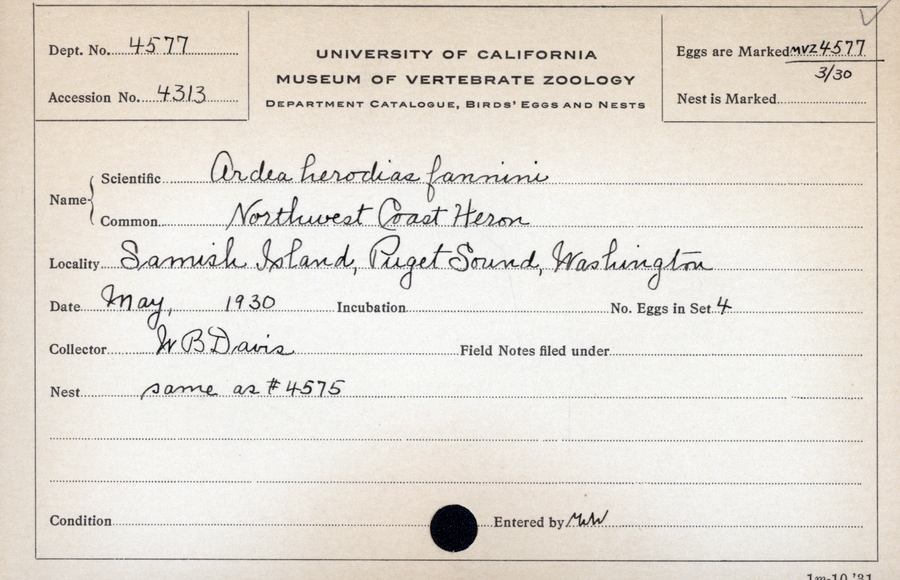 Dept. No. 4577
Accession No. 4313
UNIVERSITY OF CALIFORNIA
MUSEUM OF VERTEBRATE ZOOLOGY
DEPARTMENT CATALOGUE, BIRDS' EGGS AND NESTS
Eggs are Marked MVZ4577
3/30
Nest is Marked
Name
Scientific Ardea herodias fannini
Common Northwest Coast Heron
Locality Samish Island, Puget Sound, Washington
Date May, 1930 Incubation No. Eggs in Set 4
Collector W B Davis Field Notes filed under
Nest same as #4575
Condition Entered by
1m-10,'31